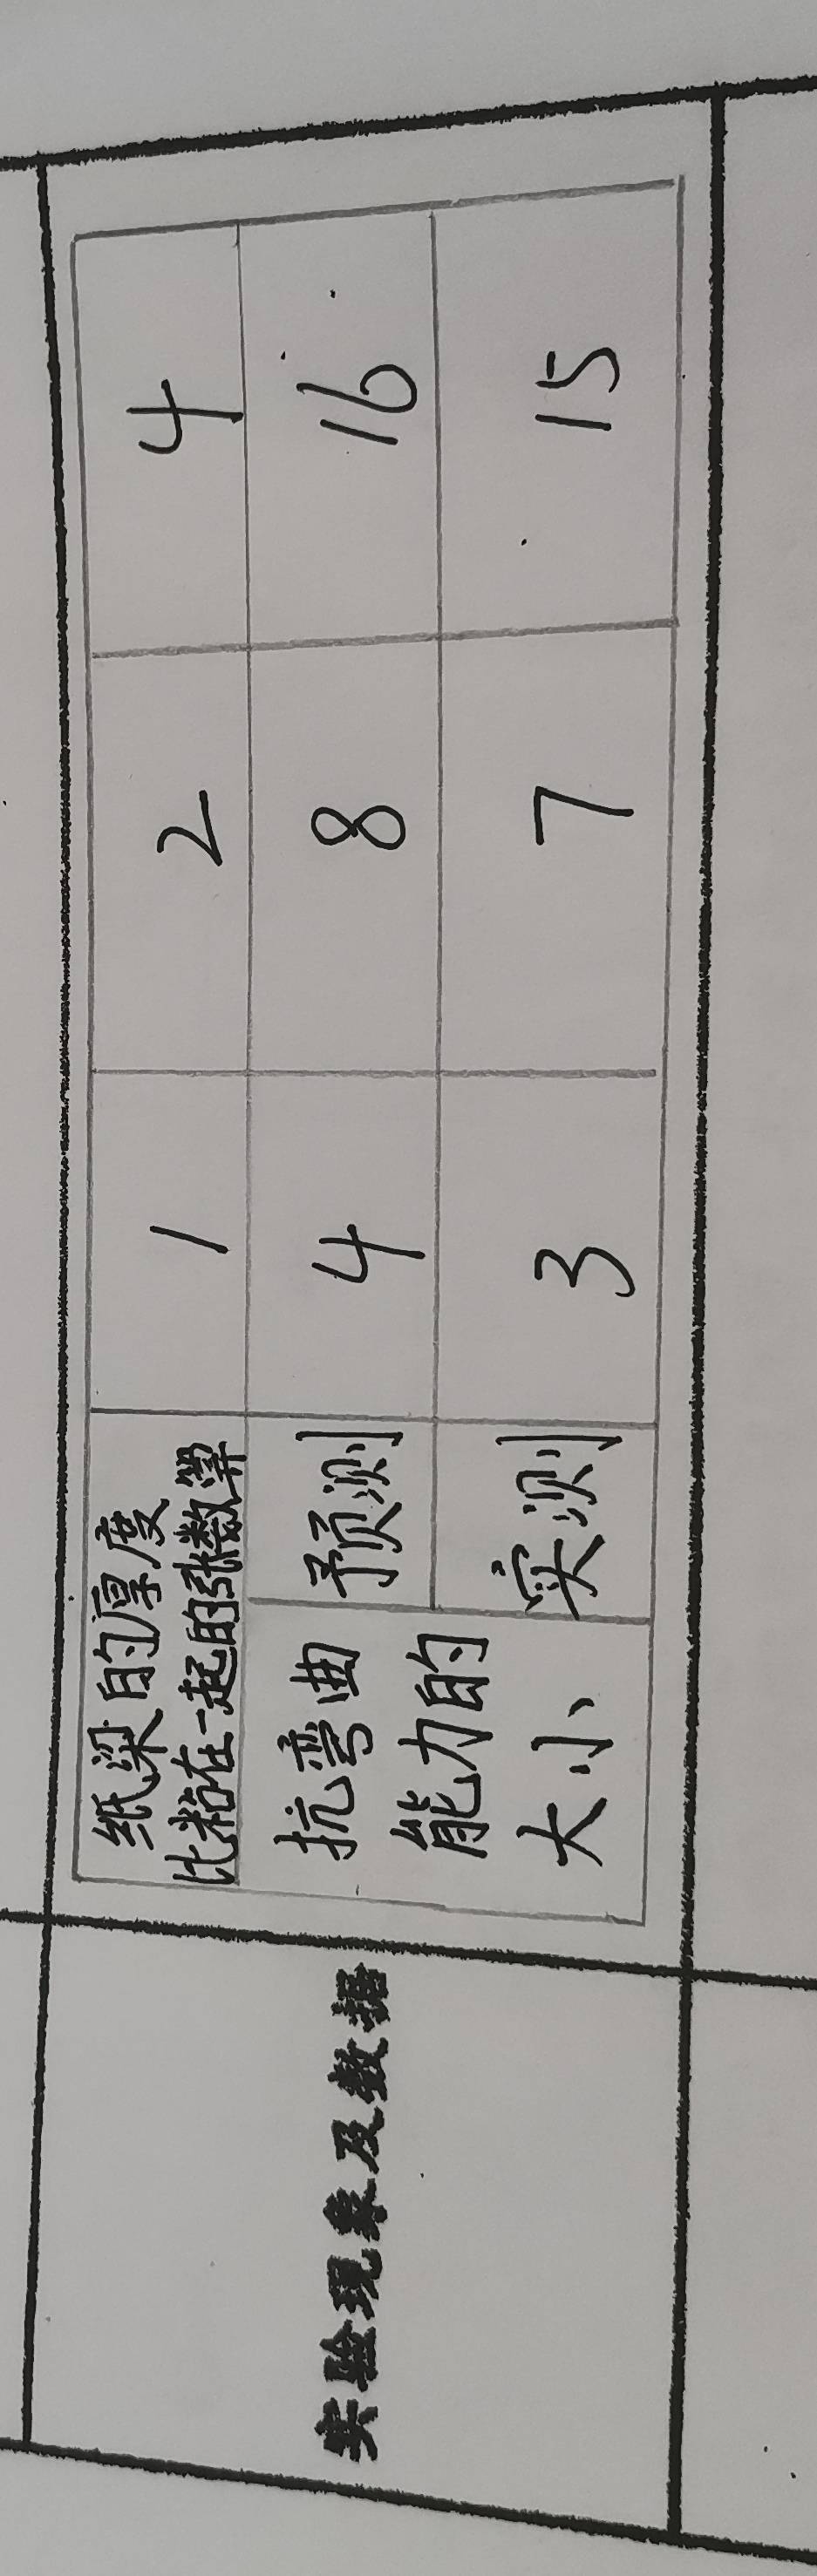 实验现象及数据
纸梁的厚度 1 2 4
比粘在一起的张数等
抗弯曲 预测 4 8 16
能力的
大小 实测 3 7 15